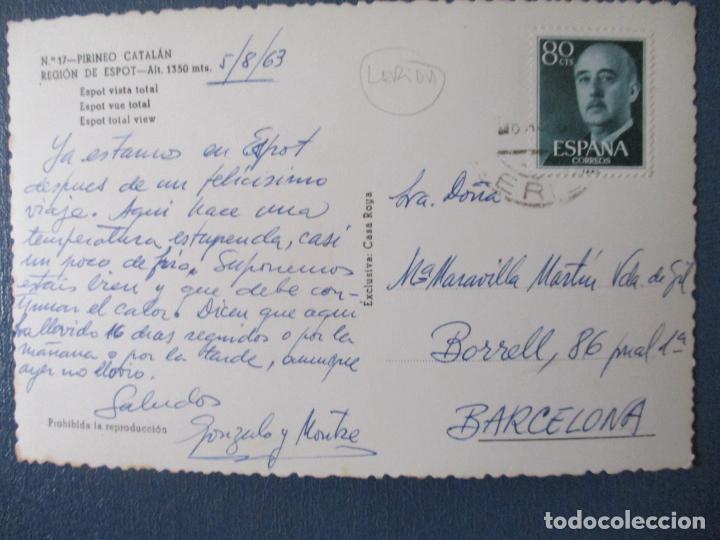 N.º 17—PIRINEO CATALÁN
REGIÓN DE ESPOT—Alt. 1350 mts.
Espot vista total
Espot vue total
Espot total view
5/8/63
LERIDA
80
CTS
ESPAÑA
CORREOS
Ya estamos en Espot
despues de un felicisimo
viaje. Aqui hace una
temperatura estupenda, casi
un poco de frio. Suponemos
estais bien y que debe con-
el calor. Dicen que aqui
ha llovido 16 dias seguidos o por la
mañana o por la tarde, aunque
ayer no llovio.
Saludos
Gonzalo y Montse
Prohibida la reproducción
Exclusiva: Casa Roya
Sra. Doña
Mª Maravilla Martín Vda. de Gil
Borrell, 86 pral 1ª
BARCELONA
todocoleccion.net